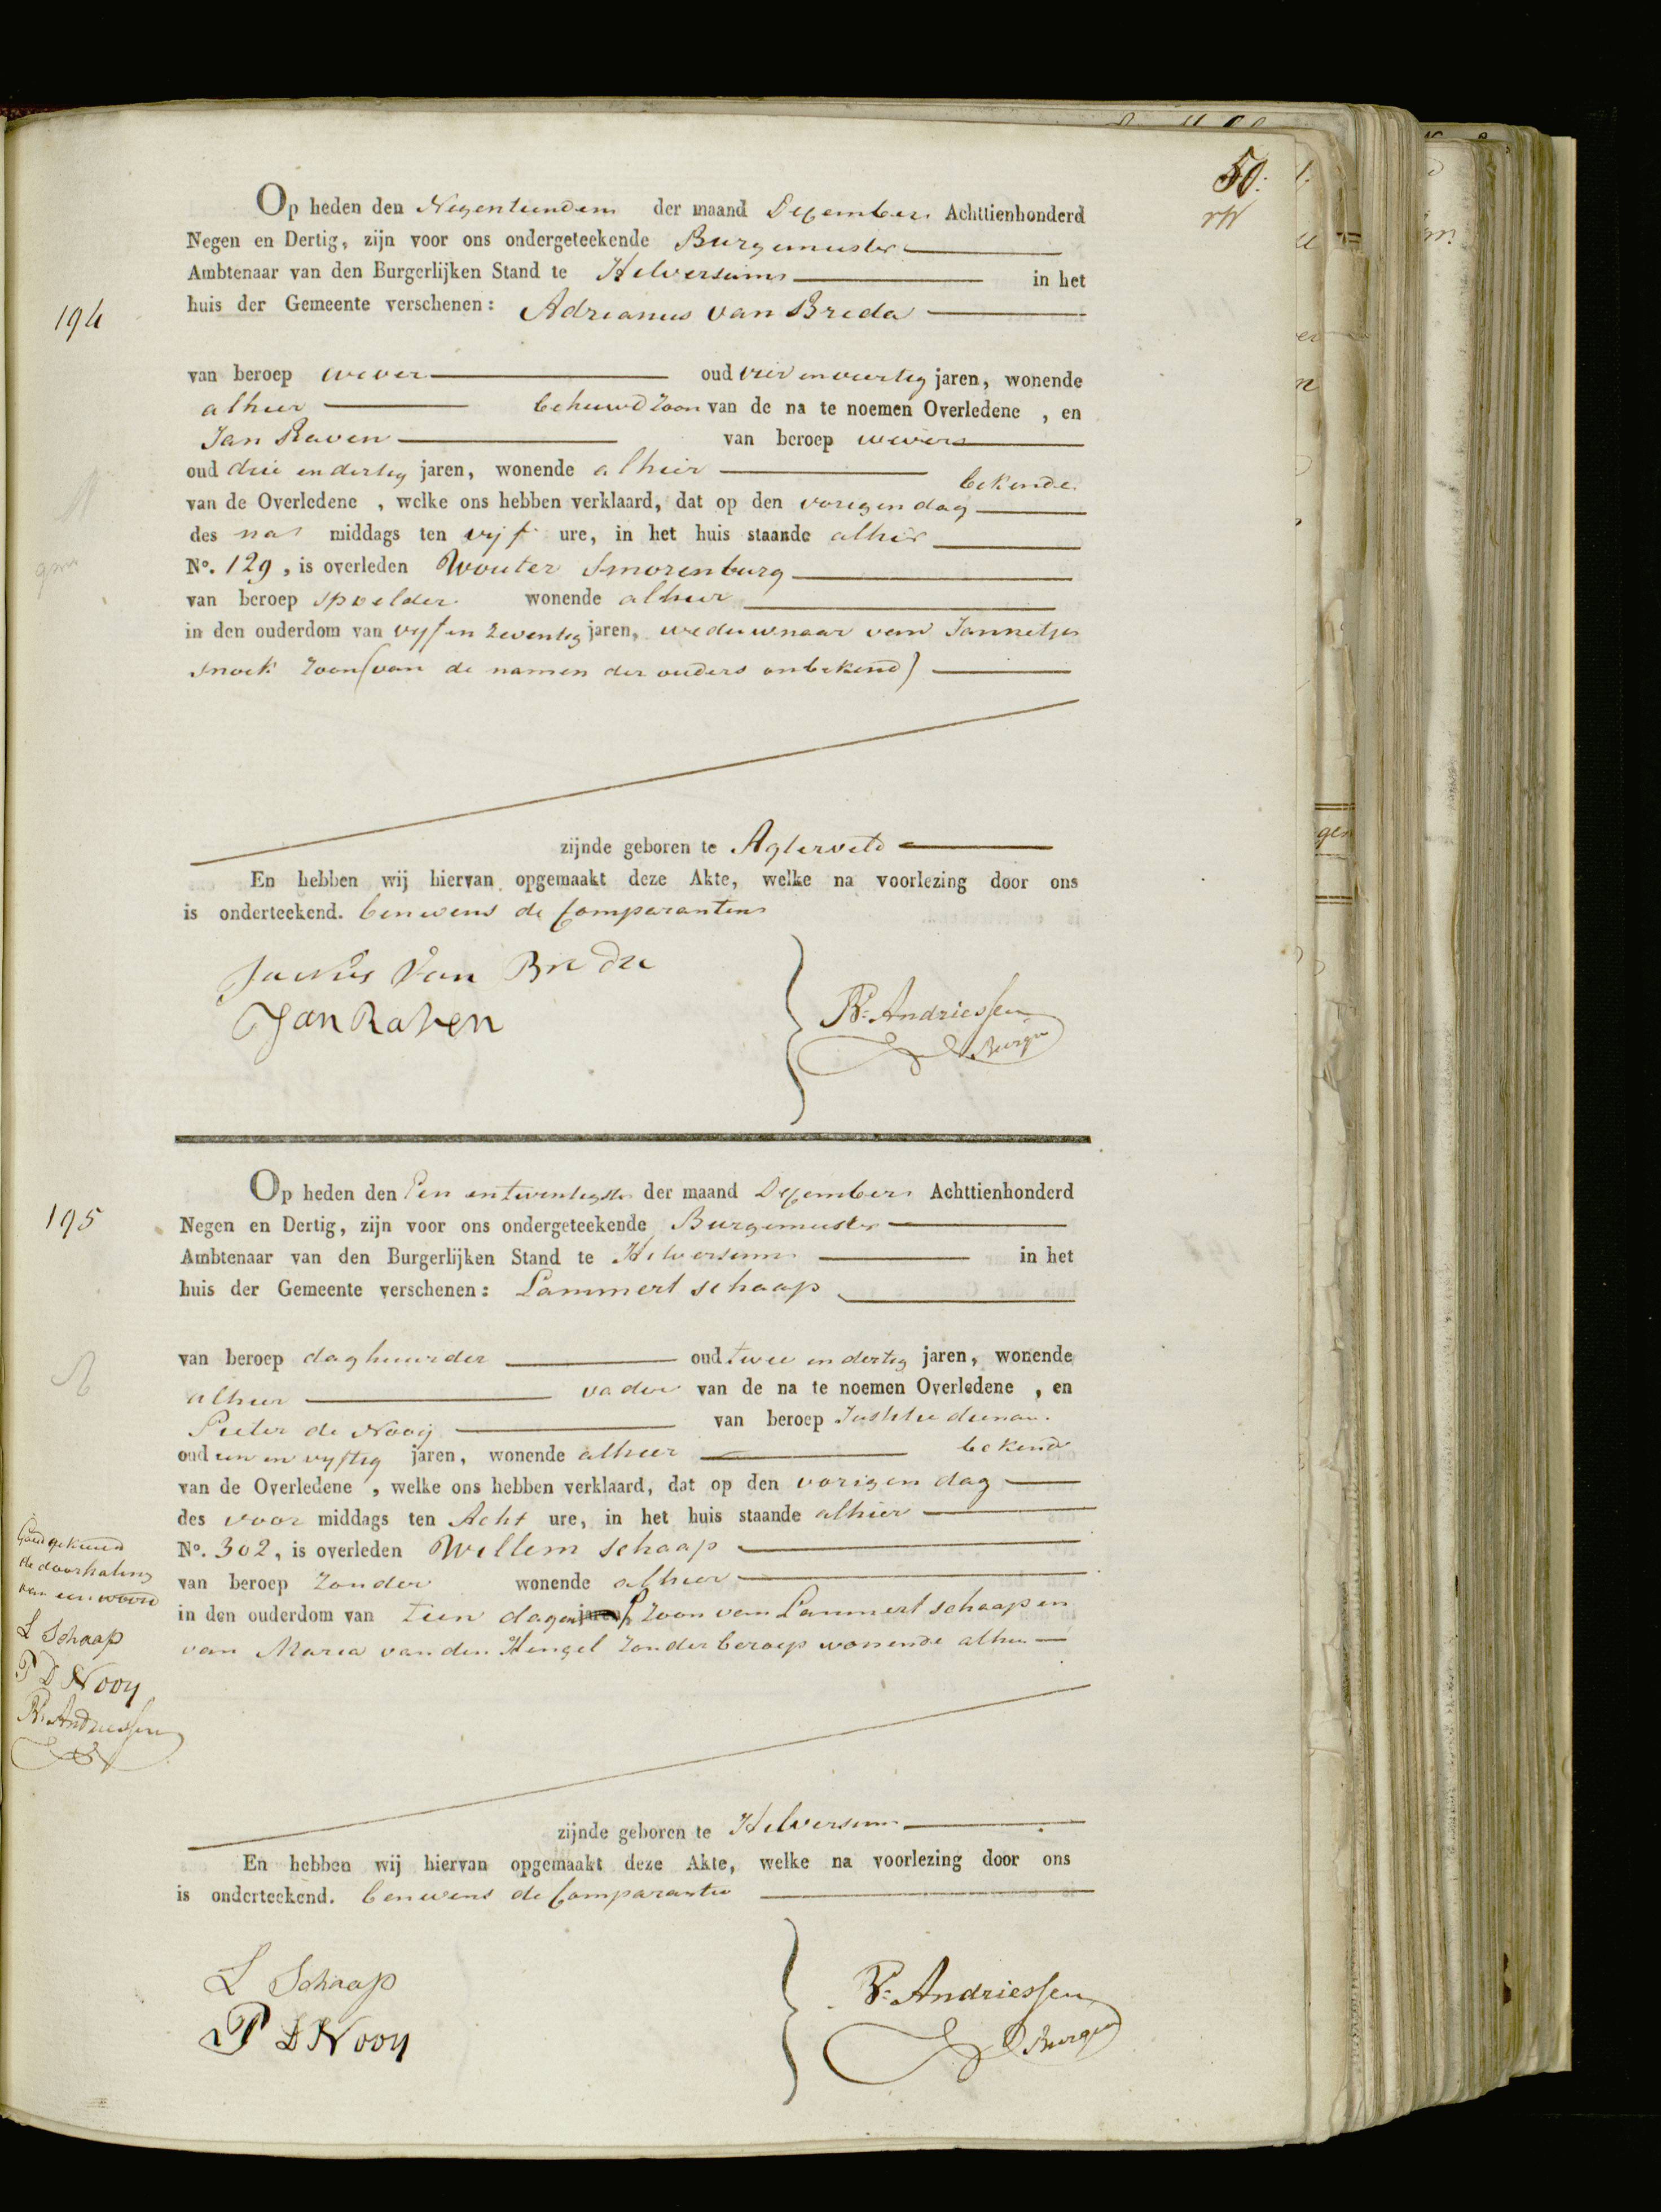 50.
Op heden den Negentienden der maand December Achttienhonderd
Negen en Dertig, zijn voor ons ondergeteekende Burgemeester
Ambtenaar van den Burgerlijken Stand te Hilversum in het
194
huis der Gemeente verschenen: Adrianus van Breda
van beroep wever oud vier en veertig jaren, wonende
alhier behuwd zoon van de na te noemen Overledene , en
Jan Raven van beroep wever
oud drie en dertig jaren, wonende alhier bekende
van de Overledene , welke ons hebben verklaard, dat op den vorigen dag
des na middags ten vijf ure, in het huis staande alhier
No. 129, is overleden Wouter Smorenburg
van beroep spoelder wonende alhier
in den ouderdom van vijf en zeventig jaren, weduwnaar van Jannetje
Snoek zoon (van de namen der ouders onbekend)
zijnde geboren te Agterveld
En hebben wij hiervan opgemaakt deze Akte, welke na voorlezing door ons
is onderteekend. benevens de Comparanten
van Breda
Jan Raven
Andriessen
Burgr
195
Op heden den Een en twintigste der maand December Achttienhonderd
Negen en Dertig, zijn voor ons ondergeteekende Burgemeester
Ambtenaar van den Burgerlijken Stand te Hilversum in het
huis der Gemeente verschenen: Lammert Schaap
van beroep daghuurder oud twee en dertig jaren, wonende
alhier vader van de na te noemen Overledene , en
Pieter de Nooij van beroep Justitie dienaar
oud een en vijftig jaren, wonende alhier bekend
van de Overledene , welke ons hebben verklaard, dat op den vorigen dag
des voor middags ten Acht ure, in het huis staande alhier
No. 302, is overleden Willem Schaap
van beroep zonder wonende alhier
in den ouderdom van tien dagen jaren, zoon van Lammert Schaap en
van Maria van den Hengel zonder beroep wonende alhier
Goedgekeurd
de doorhaling
van een woord
L Schaap
P D Nooy
Andriessen
zijnde geboren te Hilversum
En hebben wij hiervan opgemaakt deze Akte, welke na voorlezing door ons
is onderteekend. benevens de Comparanten
L Schaap
P D Nooy
Andriessen
Burgr